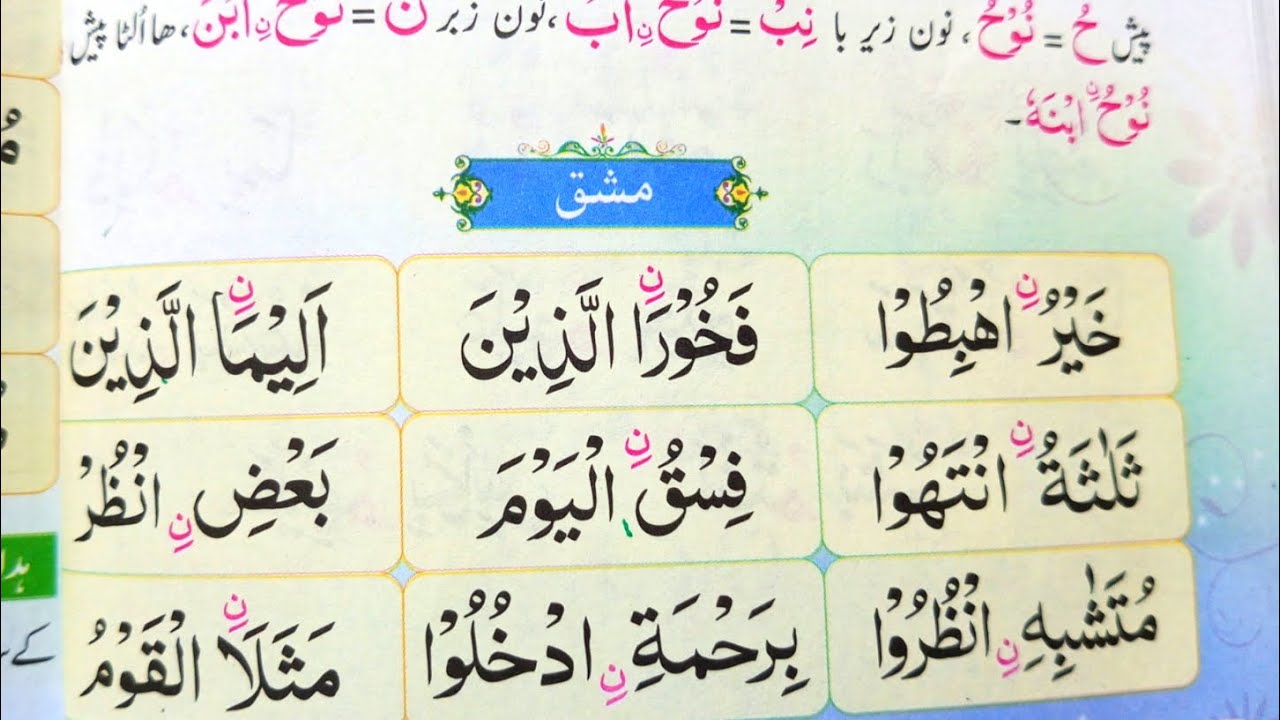 پیش حُ = نُوْحُ، نون زیر با نِبْ = نُوْحُ نِ ابْ، نون زبر نَ = نُوْحُ نِ ابْنَ، ھا اُلٹا پیش
نُوْحُ نِ ابْنَهٗ۔
مشق
خَيْرُ نِ اهْبِطُوْا فَخُوْرَا نِ الَّذِيْنَ اَلِيْمَا نِ الَّذِيْنَ
ثَلٰثَةُ نِ انْتَهُوْا فِسْقُ نِ الْيَوْمَ بَعْضِ نِ انْظُرْ
مُتَشٰبِهِ نِ انْظُرُوْا بِرَحْمَةِ نِ ادْخُلُوْا مَثَلَا نِ الْقَوْمُ